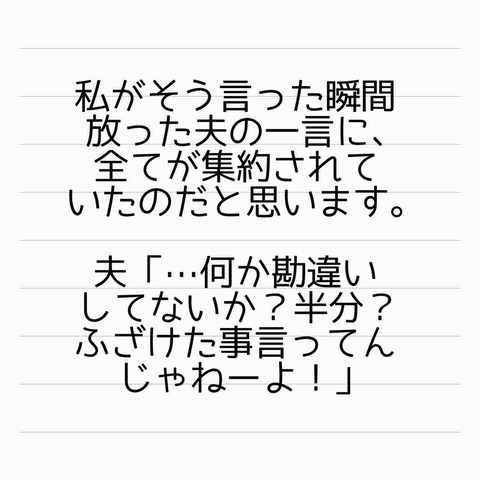 私がそう言った瞬間
放った夫の一言に、
全てが集約されて
いたのだと思います。
夫「…何か勘違い
してないか？半分？
ふざけた事言ってん
じゃねーよ！」